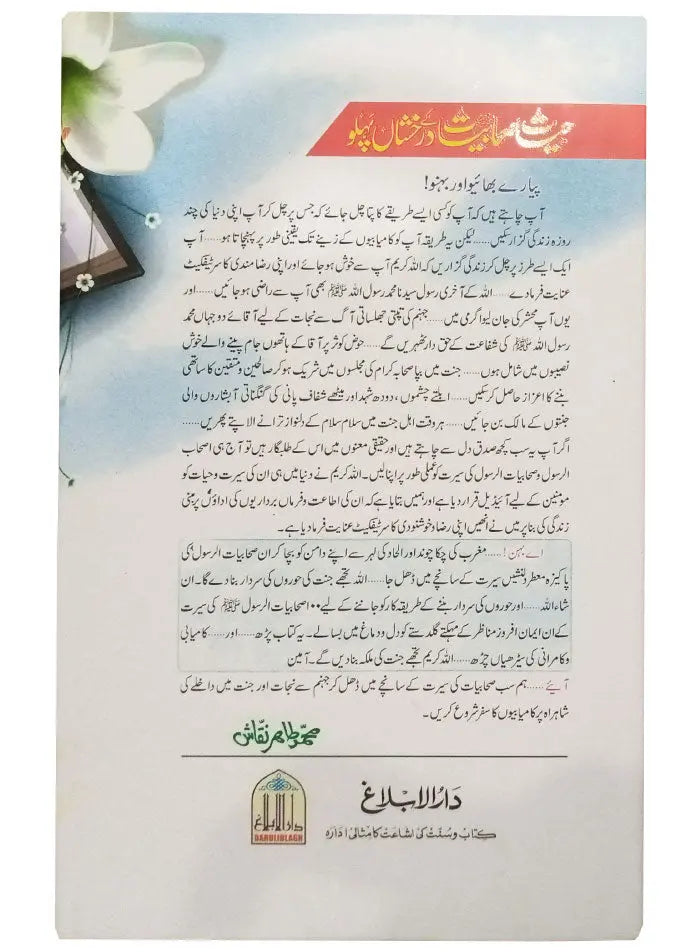 حیات صحابیات کے درخشاں پہلو
پیارے بھائیو اور بہنو!
آپ چاہتے ہیں کہ آپ کو کسی ایسے طریقے کا پتا چل جائے کہ جس پر چل کر آپ اپنی دنیا کی چند
روزہ زندگی گزار سکیں......لیکن یہ طریقہ آپ کو کامیابیوں کے زینے تک یقینی طور پر پہنچاتا ہو......آپ
ایک ایسے طرز پر چل کر زندگی گزاریں کہ اللہ کریم آپ سے خوش ہو جائے اور اپنی رضا مندی کا سرٹیفکیٹ
عنایت فرما دے......اللہ کے آخری رسول سیدنا محمد رسول اللہ ﷺ بھی آپ سے راضی ہو جائیں......اور
یوں آپ محشر کی جان لیوا گرمی میں......جہنم کی تپتی جھلساتی آگ سے نجات کے لیے آقائے دو جہاں محمد
رسول اللہ ﷺ کی شفاعت کے حق دار ٹھہریں گے......حوض کوثر پر آقا کے ہاتھوں جام پینے والے خوش
نصیبوں میں شامل ہوں......جنت میں بپا صحابہ کرام کی مجلسوں میں شریک ہو کر صالحین و متقین کا ساتھی
بننے کا اعزاز حاصل کر سکیں......ابلتے چشموں، دودھ شہد اور میٹھے شفاف پانی کی گنگناتی آبشاروں والی
جنتوں کے مالک بن جائیں......ہر وقت اہل جنت میں سلام سلام کے دلنواز ترانے الاپتے پھریں......
اگر آپ یہ سب کچھ صدق دل سے چاہتے ہیں اور حقیقی معنوں میں اس کے طلبگار ہیں تو آج ہی اصحاب
الرسول و صحابیات الرسول کی سیرت کو عملی طور پر اپنا لیں۔ اللہ کریم نے دنیا میں ہی ان کی سیرت و حیات کو
مومنین کے لیے آئیڈیل قرار دیا ہے اور ہمیں بتایا ہے کہ ان کی اطاعت و فرماں برداریوں کی اداؤں پر مبنی
زندگی کی بنا پر میں نے انھیں اپنی رضا و خوشنودی کا سرٹیفکیٹ عنایت فرما دیا ہے۔
اے بہن!......مغرب کی چکاچوند اور الحاد کی لہر سے اپنے دامن کو بچا کر ان صحابیات الرسول کی
پاکیزہ معطر دلنشیں سیرت کے سانچے میں ڈھل جا......اللہ تجھے جنت کی حوروں کی سردار بنا دے گا۔ ان
شاء اللہ......اور حوروں کی سردار بننے کے طریقہ کار کو جاننے کے لیے ۱۰۰ صحابیات الرسول ﷺ کی سیرت
کے ان ایمان افروز مناظر کے مہکتے گلدستے کو دل و دماغ میں بسا لے۔ یہ کتاب پڑھ......اور......کامیابی
و کامرانی کی سیڑھیاں چڑھ......اللہ کریم تجھے جنت کی ملکہ بنا دیں گے۔ آمین
آئیے......ہم سب صحابیات کی سیرت کے سانچے میں ڈھل کر جہنم سے نجات اور جنت میں داخلے کی
شاہراہ پر کامیابیوں کا سفر شروع کریں۔
محمد طاہر نقاش
دارُالابلاغ
کتاب و سنت کی اشاعت کا مثالی ادارہ
دارالابلاغ
DARULIBLAGH